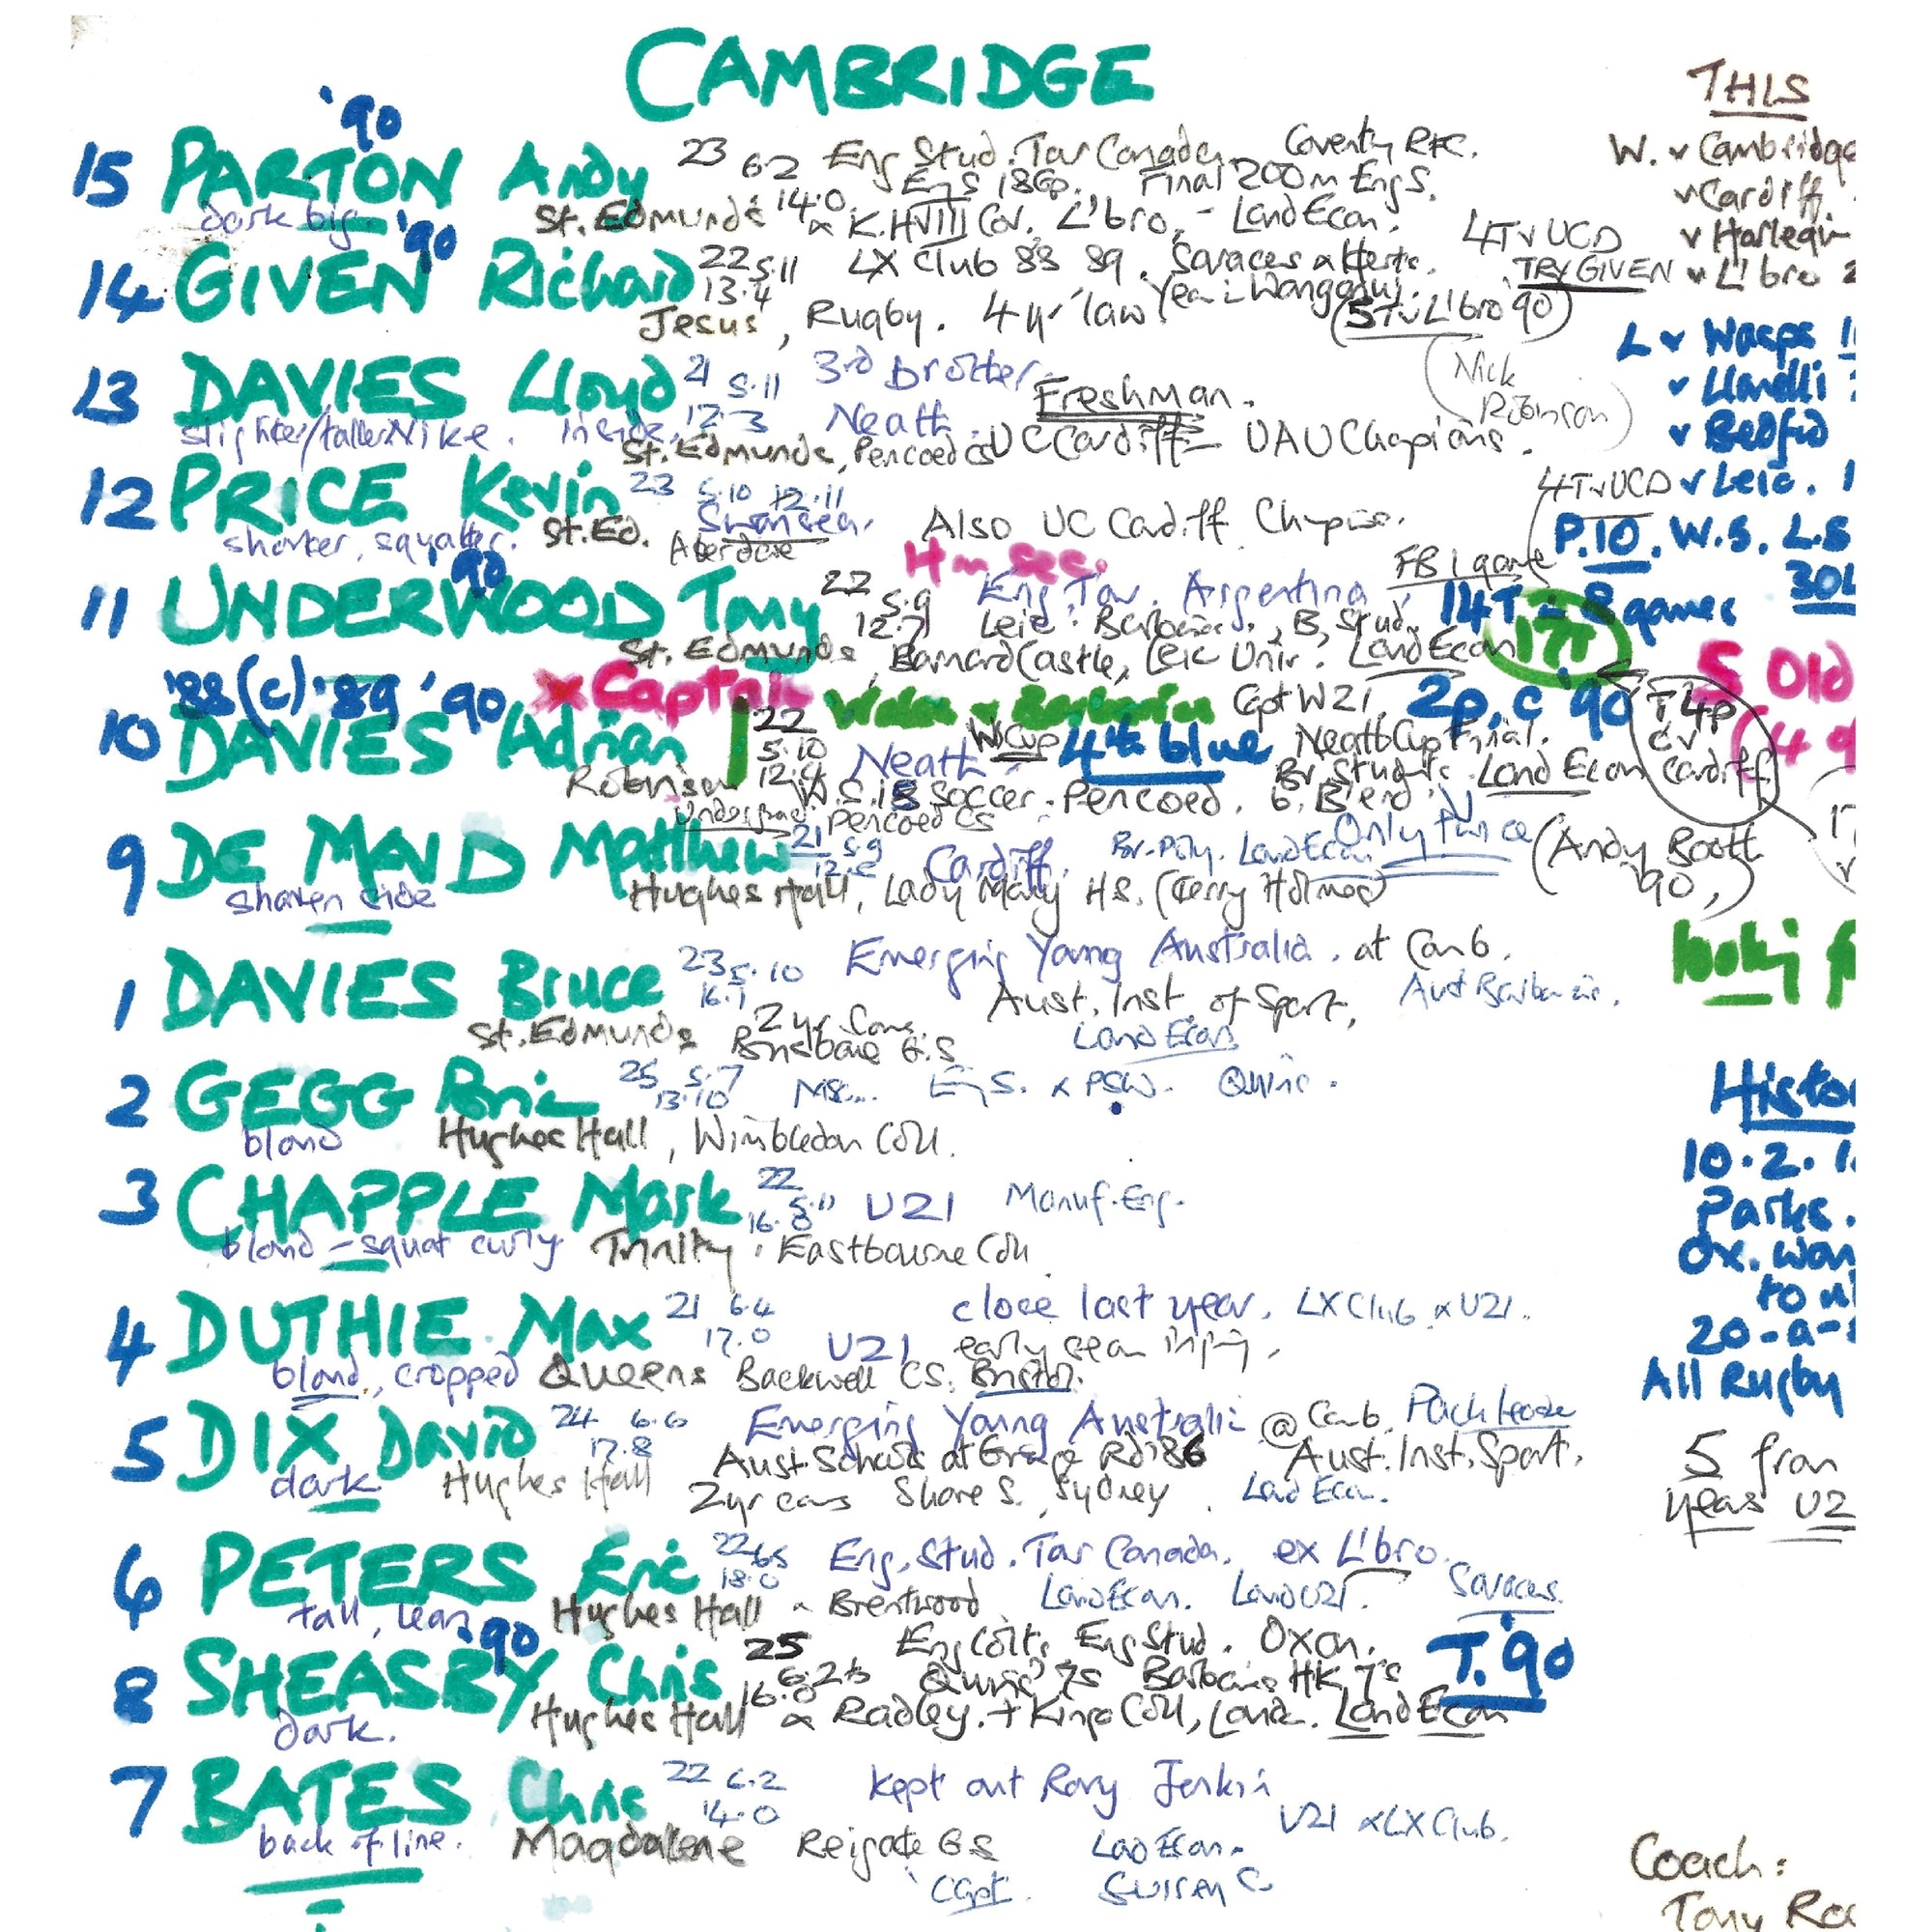 CAMBRIDGE
THIS
'90
15 PARTON Andy 23 6.2 Eng Stud. Tour Canada. Coventry RFC. W. v Cambridge
Eng S 18Gp. Final 200m Eng S. v Cardiff.
dark big St. Edmunds 14.0 K.HVIII Cov. L'bro, - Land Econ. 4T v UCD v Harlequin
'90
14 GIVEN Richard 22 5.11 LX Club 88 89. Saraces Herts. TRY GIVEN v L'bro 2
13.4
Jesus, Rugby. 4 yr law Year: Wanganui. (5T v L'bro '90)
L v Wasps
13 DAVIES Lloyd 21 5.11 3rd Brother. Freshman. (Nick Robinson) v Llanelli
slighter/taller Nike. inside. 12.3 Neath. v Bedfd
St. Edmunds, Pencoed CS UC Cardiff - UAU Chapions.
12 PRICE Kevin 23 5.10 12.11 4T v UCD v Leic. 1
shorter, squatter. St. Ed. Swansea. Also UC Cardiff P.10. W.S. L.S
Aberdare
'90 Hn Sec. FB 1 game 30
11 UNDERWOOD Tony 22 5.9 Eng. Tour. Argentina, 14T = 8 games
12.7 Leic. Barbarians, B. Stud. 17T
St. Edmunds, Barnard Castle, Leic Univ. Land Econ
5 Old
'88(c) '89 '90 x Captain Wales v Barbarian Capt W21. 2p, c '90 T 4p
10 DAVIES Adrian 22 5.10 Neath WCup 4th blue Neath Cup Final. c v Cardiff (4
Robinson 12.4 Br. Students Land Econ
W.S.18 Soccer. Pencoed.
Undergrad Pencoed CS
9 DE MAID Matthew 21 5.9 Cardiff. Br. Poly. Land Econ Only twice (Andy Boott '90,)
shaven side 12.2 Hughes Hall, Lady Mary HS. (Terry Holmes)
1 DAVIES Bruce 23 5.10 Emerging Young Australia. at Camb.
16.1 Aust. Inst. of Sport,
St. Edmunds 2 yr Brisbane G.S Land Econ
2 GEGG 25 5.7 Quins.
13.10
blond Hughes Hall, Wimbledon Coll. Histo
10.2.1
3 CHAPPLE Mark 22 5.11 U21 Manuf. Eng. Parks.
16.8
blond - squat curly Trinity. Eastbourne Coll Ox. won
to
4 DUTHIE Max 21 6.4 close last year, LX Club U21. 20-a-
17.0 U21 early injury.
blond, cropped Queens Backwell CS. Bristol. All Rugby
5 DIX David 24 6.6 Emerging Young Australia @ Camb. Pack leader
17.8 Aust. Schools at Grange Rd '86 Aust. Inst. Sport. 5 from
dark Hughes Hall 2yr Shore S., Sydney. Land Econ. years U2
6 PETERS Eric 22 6.5 Eng. Stud. Tour Canada. ex L'bro.
18.0
tall, lean Hughes Hall Brentwood Land Econ. Lond U21. Saraces.
'90
8 SHEASBY Chris 25 Eng Colts Eng Stud. Oxon. T. '90
16.8 6.2½ Quins 7s Barbarians HK 7's
dark. Hughes Hall Radley. + Kings Coll, Lond. Land Econ
7 BATES Chris 22 6.2 kept out Rory Jenkin
14.0 U21 LX Club.
back of line. Magdalene Reigate GS Land Econ.
Capt. Surrey C
Coach:
Tony